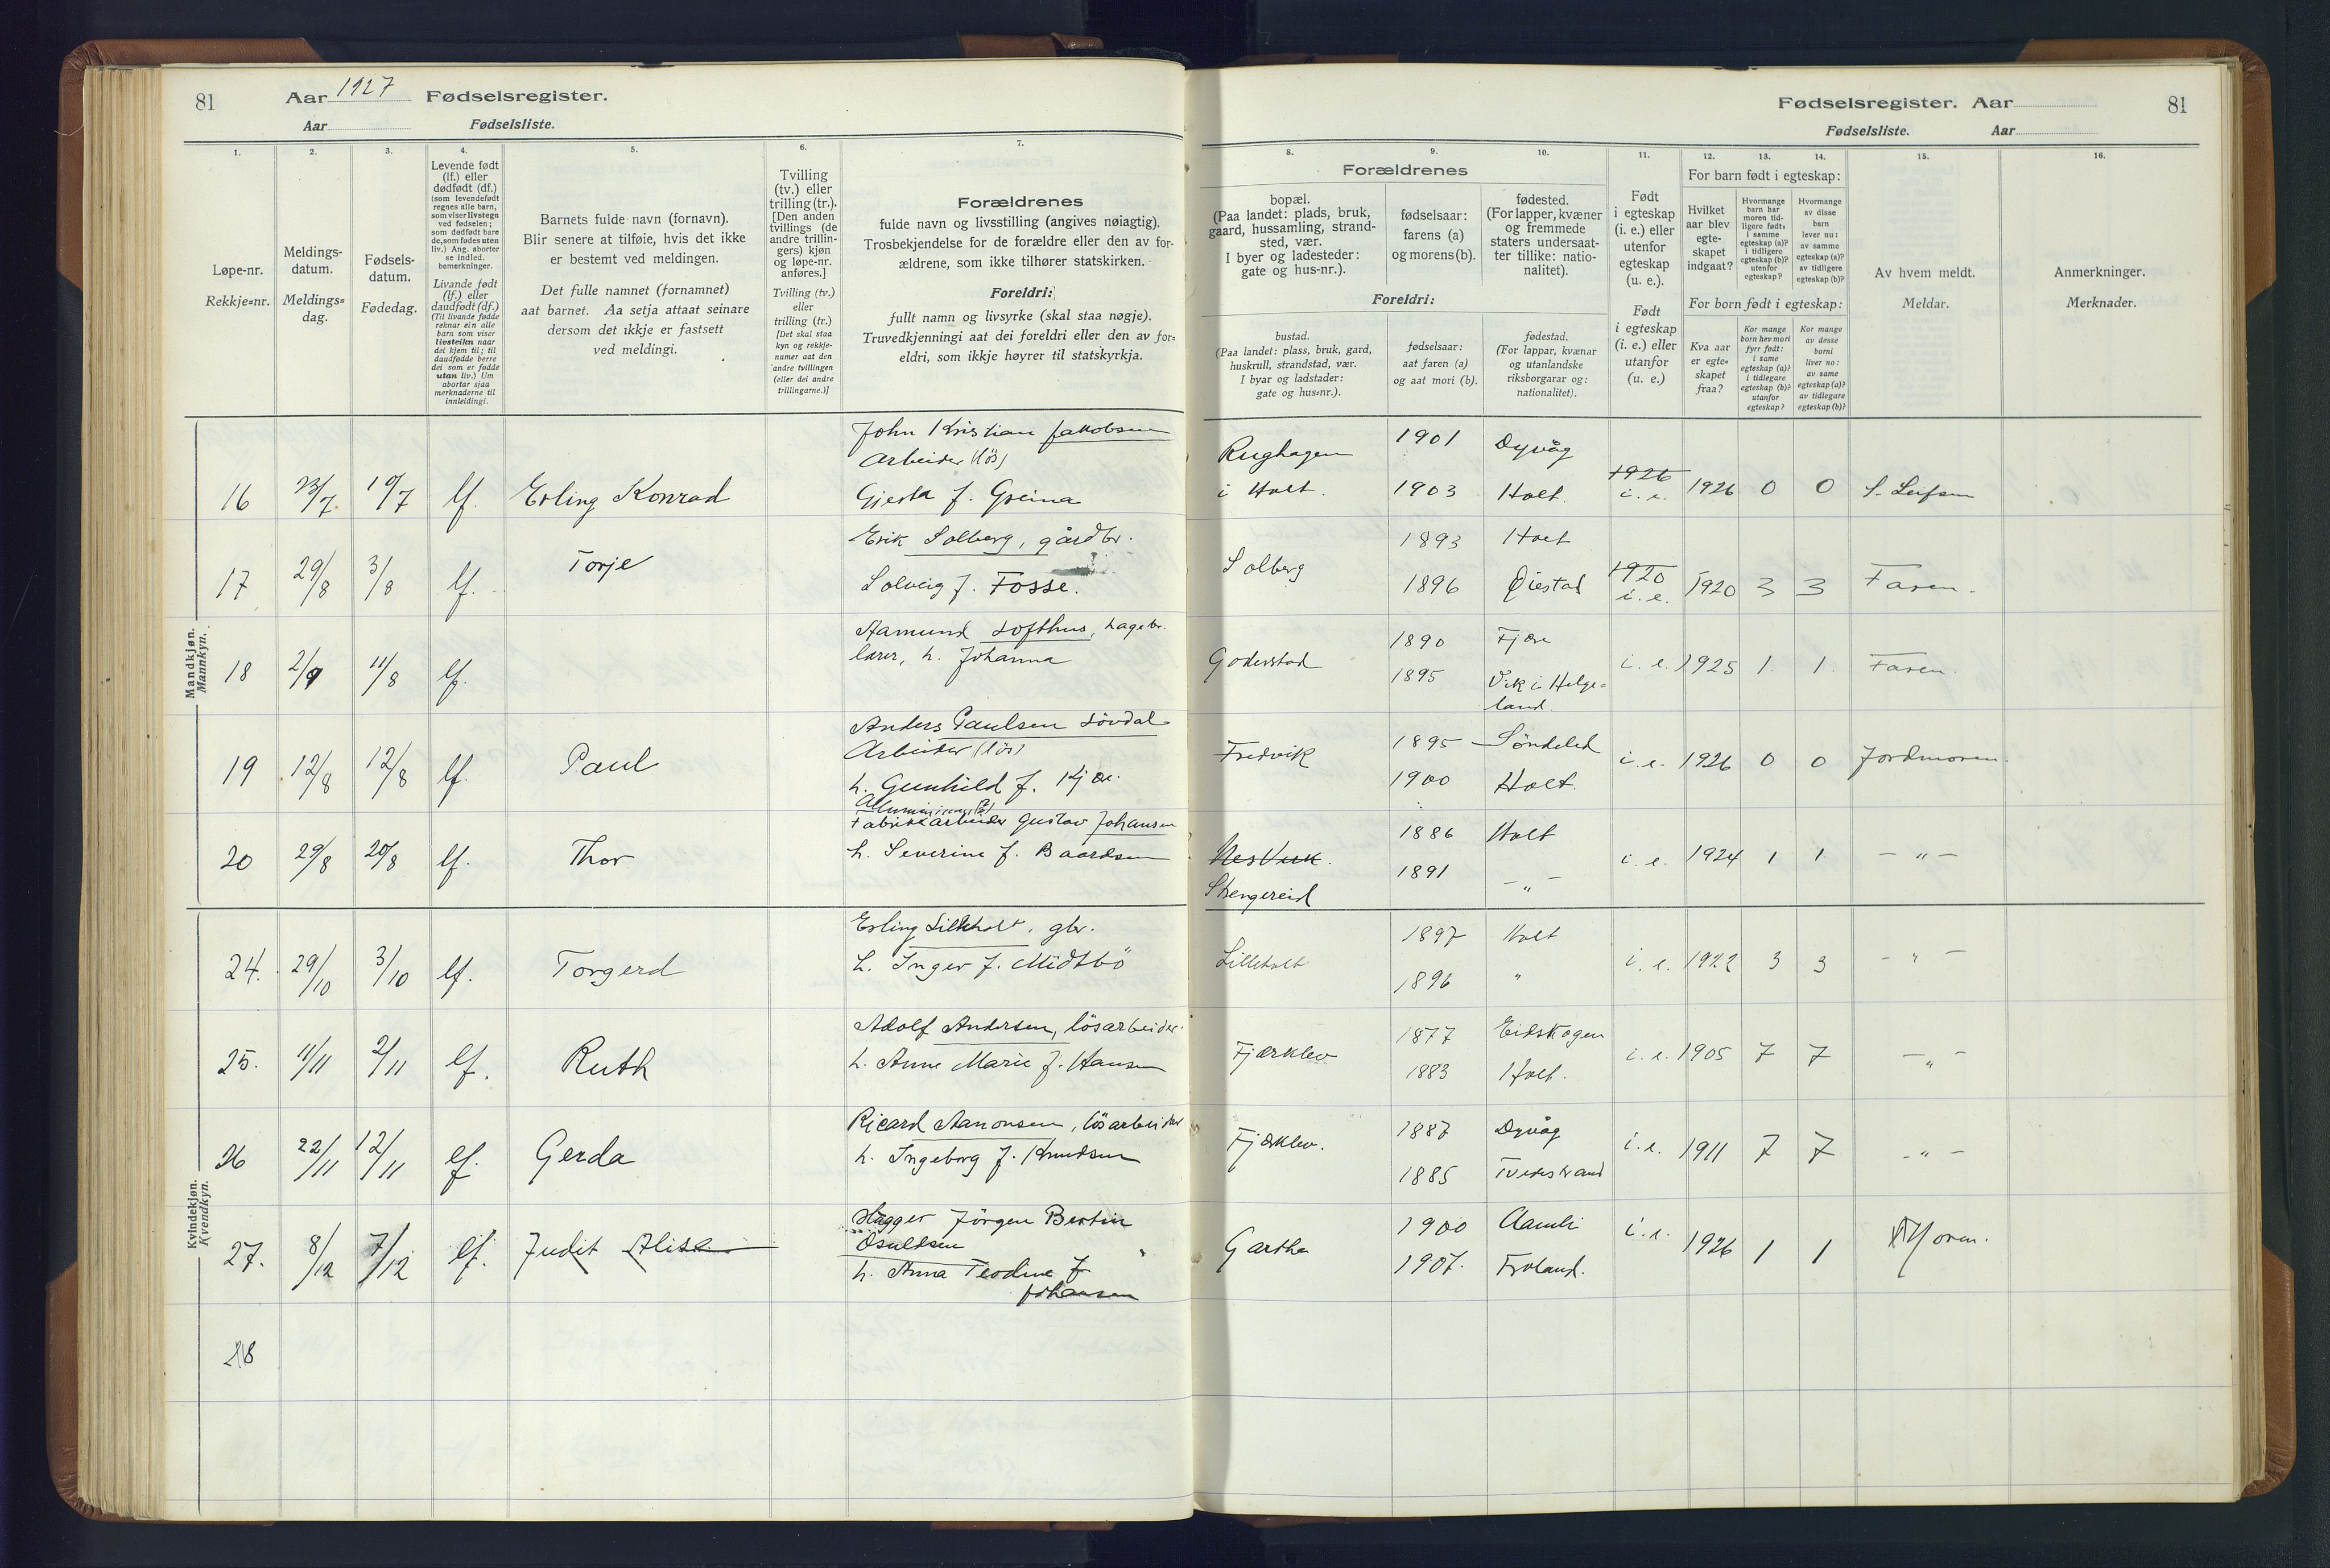 81 Aar 1927 Fødselsregister.
Aar Fødselsliste.
Fødselsregister. Aar 81
Fødselsliste. Aar
1. 2. 3. 4. 5. 6. 7.
Løpe-nr.
Rekkje=nr.
Meldings-
datum.
Meldings=
dag.
Fødsels-
datum.
Fødedag.
Levende født
(lf.) eller
dødfødt (df.)
(som levendefødt
regnes alle barn,
som viser livstegn
ved fødselen;
som dødfødt bare
de, som fødes uten
liv.) Ang. aborter
se indled.
bemerkninger.
Livande født
(lf.) eller
daudfødt (df.)
(Til livande fødde
reknar ein alle
barn som viser
livsteikn naar
dei kjem til; til
daudfødde berre
dei som er fødde
utan liv.) Um
abortar sjaa
merknaderne til
innleidingi.
Barnets fulde navn (fornavn).
Blir senere at tilføie, hvis det ikke
er bestemt ved meldingen.
Det fulle namnet (fornamnet)
aat barnet. Aa setja attaat seinare
dersom det ikkje er fastsett
ved meldingi.
Tvilling
(tv.) eller
trilling (tr.).
[Den anden
tvillings (de
andre trillin-
gers) kjøn
og løpe-nr.
anføres.]
Tvilling (tv.)
eller
trilling (tr.)
[Det skal staa
kyn og rekkje-
numer aat den
andre tvillingen
(eller dei andre
trillingarne.)]
Forældrenes
fulde navn og livsstilling (angives nøiagtig).
Trosbekjendelse for de forældre eller den av for-
ældrene, som ikke tilhører statskirken.
Foreldri:
fullt namn og livsyrke (skal staa nøgje).
Truvedkjenningi aat dei foreldri eller den av for=
eldri, som ikkje høyrer til statskyrkja.
8. 9. 10. 11. 12. 13. 14. 15. 16.
Forældrenes
bopæl.
(Paa landet: plads, bruk,
gaard, hussamling, strand-
sted, vær.
I byer og ladesteder:
gate og hus-nr.).
fødselsaar:
farens (a)
og morens (b).
fødested.
(For lapper, kvæner
og fremmede
staters undersaat-
ter tillike: natio-
nalitet).
Foreldri:
bustad.
(Paa landet: plass, bruk, gard,
huskrull, strandstad, vær.
I byar og ladstader:
gate og hus=nr.).
fødselsaar:
aat faren (a)
og aat mori (b).
fødestad.
(For lappar, kvænar
og utanlandske
riksborgarar og:
nationalitet).
Født
i egteskap
(i. e.) eller
utenfor
egteskap
(u. e.).
Født
i egteskap
(i. e.) eller
utanfor
(u. e.)
For barn født i egteskap:
Hvilket
aar blev
egte-
skapet
indgaat?
Hvormange
barn har
moren tid-
ligere født:
i samme
egteskap (a)?
i tidligere
egteskap (b)?
utenfor
egteskap?
Hvormange
av disse
barn
lever nu:
av samme
egteskap (a)?
av tidligere
egteskap (b)?
For born født i egteskap:
Kva aar
er egte=
skapet
fraa?
Kor mange
born hev mori
fyrr født:
i same
egteskap (a)?
i tidlegare
egteskap (b)?
utanfor
egteskap?
Kor mange
av desse
borni
liver no:
av same
egteskap (a)?
av tidlegare
egteskap (b)?
Av hvem meldt.
Meldar.
Anmerkninger.
Merknader.
Mandkjøn.
Mannkyn.
John Kristian Jakobsen
Arbeider (lös)
16 23/7. 19/7 lf. Erling Konrad Gjesta f. Greina
Rughagen 1901 Dyvåg
i Holt. 1903 Holt. 1926 i. e. 1926 0 0 S. Leifsen
Erik Solberg, gårdbr.
17 29/8 3/8 lf. Torje Solveig f. Fosse.
Solberg 1893 Holt
1896 Øiestad 1920 i. e. 1920 3 3 Faren.
Aamund Lofthus, hagebr.
18 2/9 11/8 lf. lærer, h. Johanna
Goderstad 1890 Fjære
1895 Vik i Helge=
land. i. e. 1925 1. 1. Faren.
Anders Paulsen Lövdal
Arbeider (lös)
19 12/8 12/8 lf. Paul h. Gunhild f. Kjær.
Fredvik 1895 Söndeled
1900 Holt. i. e. 1926 0 0 Jordmoren.
Aluminium
Fabrikkarbeider Gustav Johansen
20 29/8 20/8 lf. Thor h. Severine f. Baardsen
Nes Verk. 1886 Holt
Stengereid 1891 — " — i. e. 1924 1 1 — " —
Kvindekjøn.
Kvendkyn.
Erling Lilleholt, gbr.
24. 29/10 3/10 lf. Torgerd h. Inger f. Midtbö
Lilleholt 1897 Holt
1896 " i. e. 1922 3 3 — " —
Adolf Andersen, lösarbeider.
25. 11/11 2/11 lf. Ruth h. Anne Marie f. Hansen
Fjærklev 1877 Eidskogen
1883 Holt. i. e. 1905 7 7 — " —
Ricard Aanonsen, lösarbeider
26 22/11 12/11 lf. Gerda h. Ingeborg f. Knudsen
Fjærklev. 1887 Dyvåg
1885 Tvedestrand i. e. 1911 7 7 — " —
Hugger Jörgen Bertin
Osuldsen
27. 8/12 7/12 lf. Judit Alise h. Anna Teodine f.
Johansen
Gartha 1900 Aamli
1907. Froland. i. e. 1926 1 1 Moren.
28